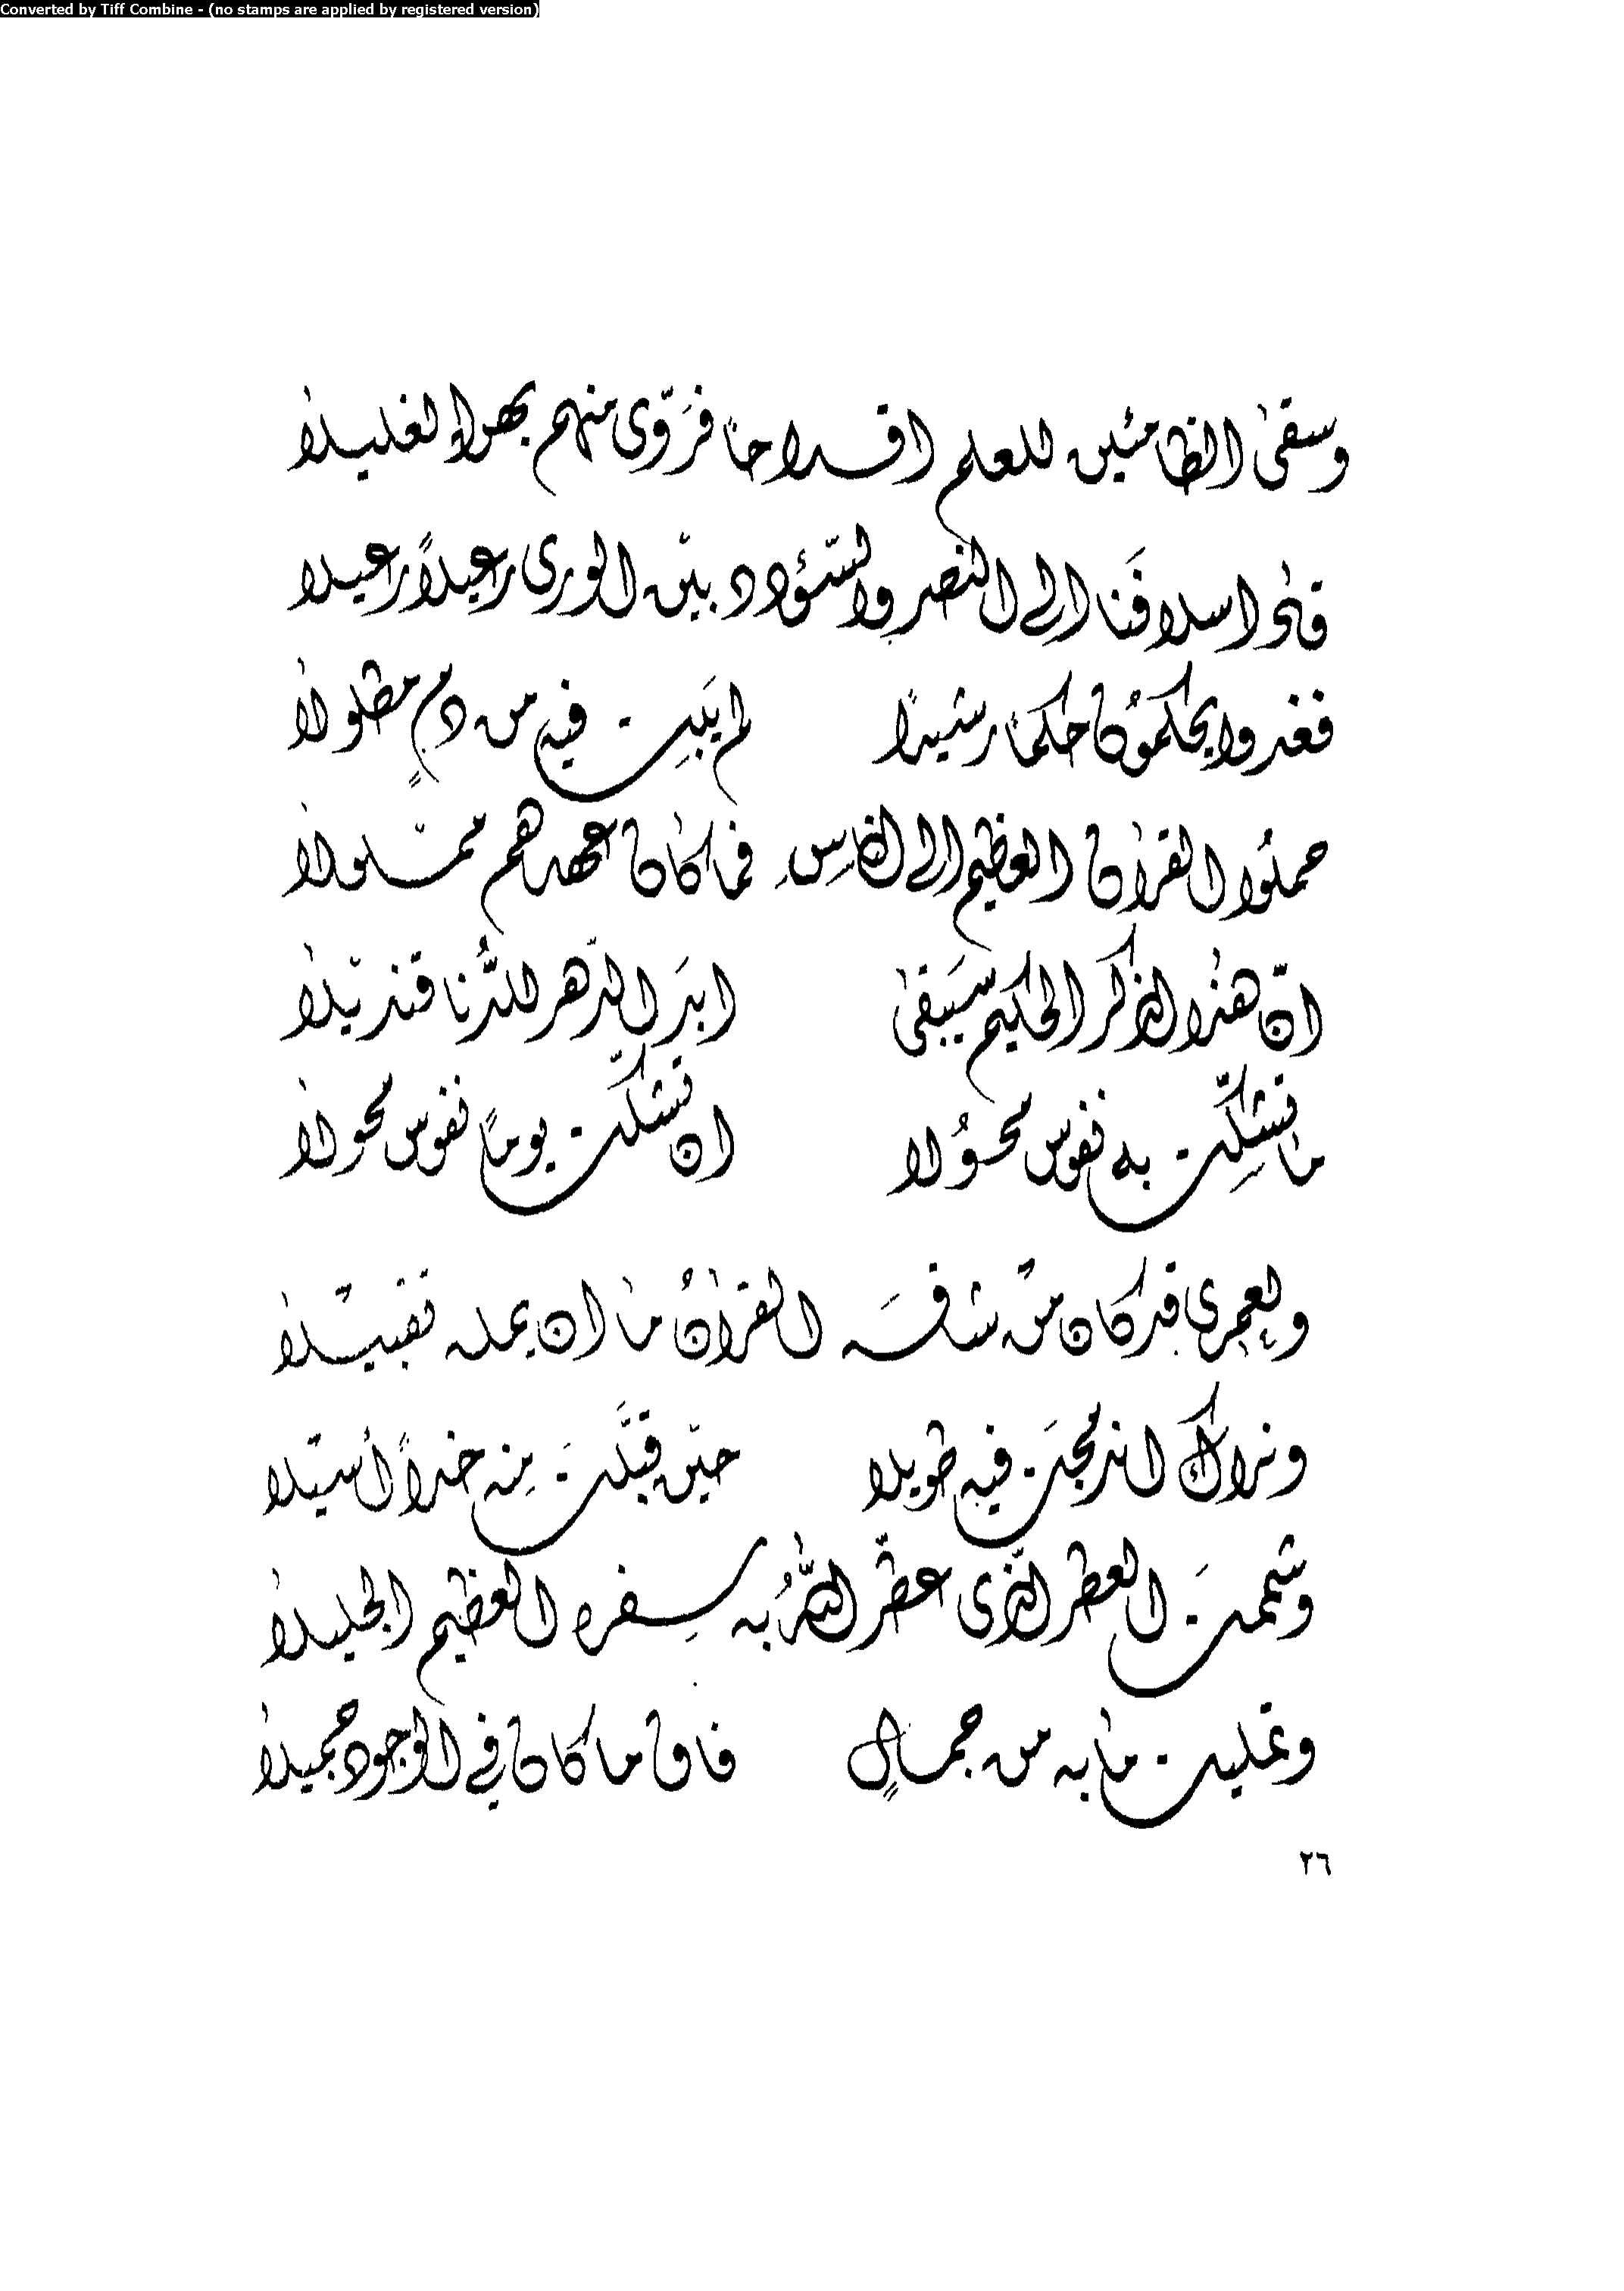 Converted by Tiff Combine - (no stamps are applied by registered version)
وسقى الظامئين للعلم اقداحاً فَرَوّى منهم بهداه الغليلا
قاد اسلافَنا الى النصر والسّؤدد بين الورى رعيلاً رعيلا
فغدوا يحكمون حكماً رشيداً لم يَبِت فيه من دمٍ مطلولا
حملوا القرآن العظيم الى الناسِ فما كان عهدهم مملولا
انّ هذا الذكر الحكيم سَيبقى ابدَ الدّهر للدُّنا قنديلا
ما تشكّت به نفوس محولا ان تشكّت يوماً نفوس محولا
ولعمري قد كان من شافَه القرآنُ ما ان يمله تقبيلا
ونراك اندمجتَ فيه طويلا حين قبَّلتَ مِنه خداً أسيلا
وشممتَ العطر الذّي عطّر اللهُ به سِفره العظيم الجليلا
وتمليت ما به من جمالٍ فاق ما كان في الوجود جميلا
٢٦